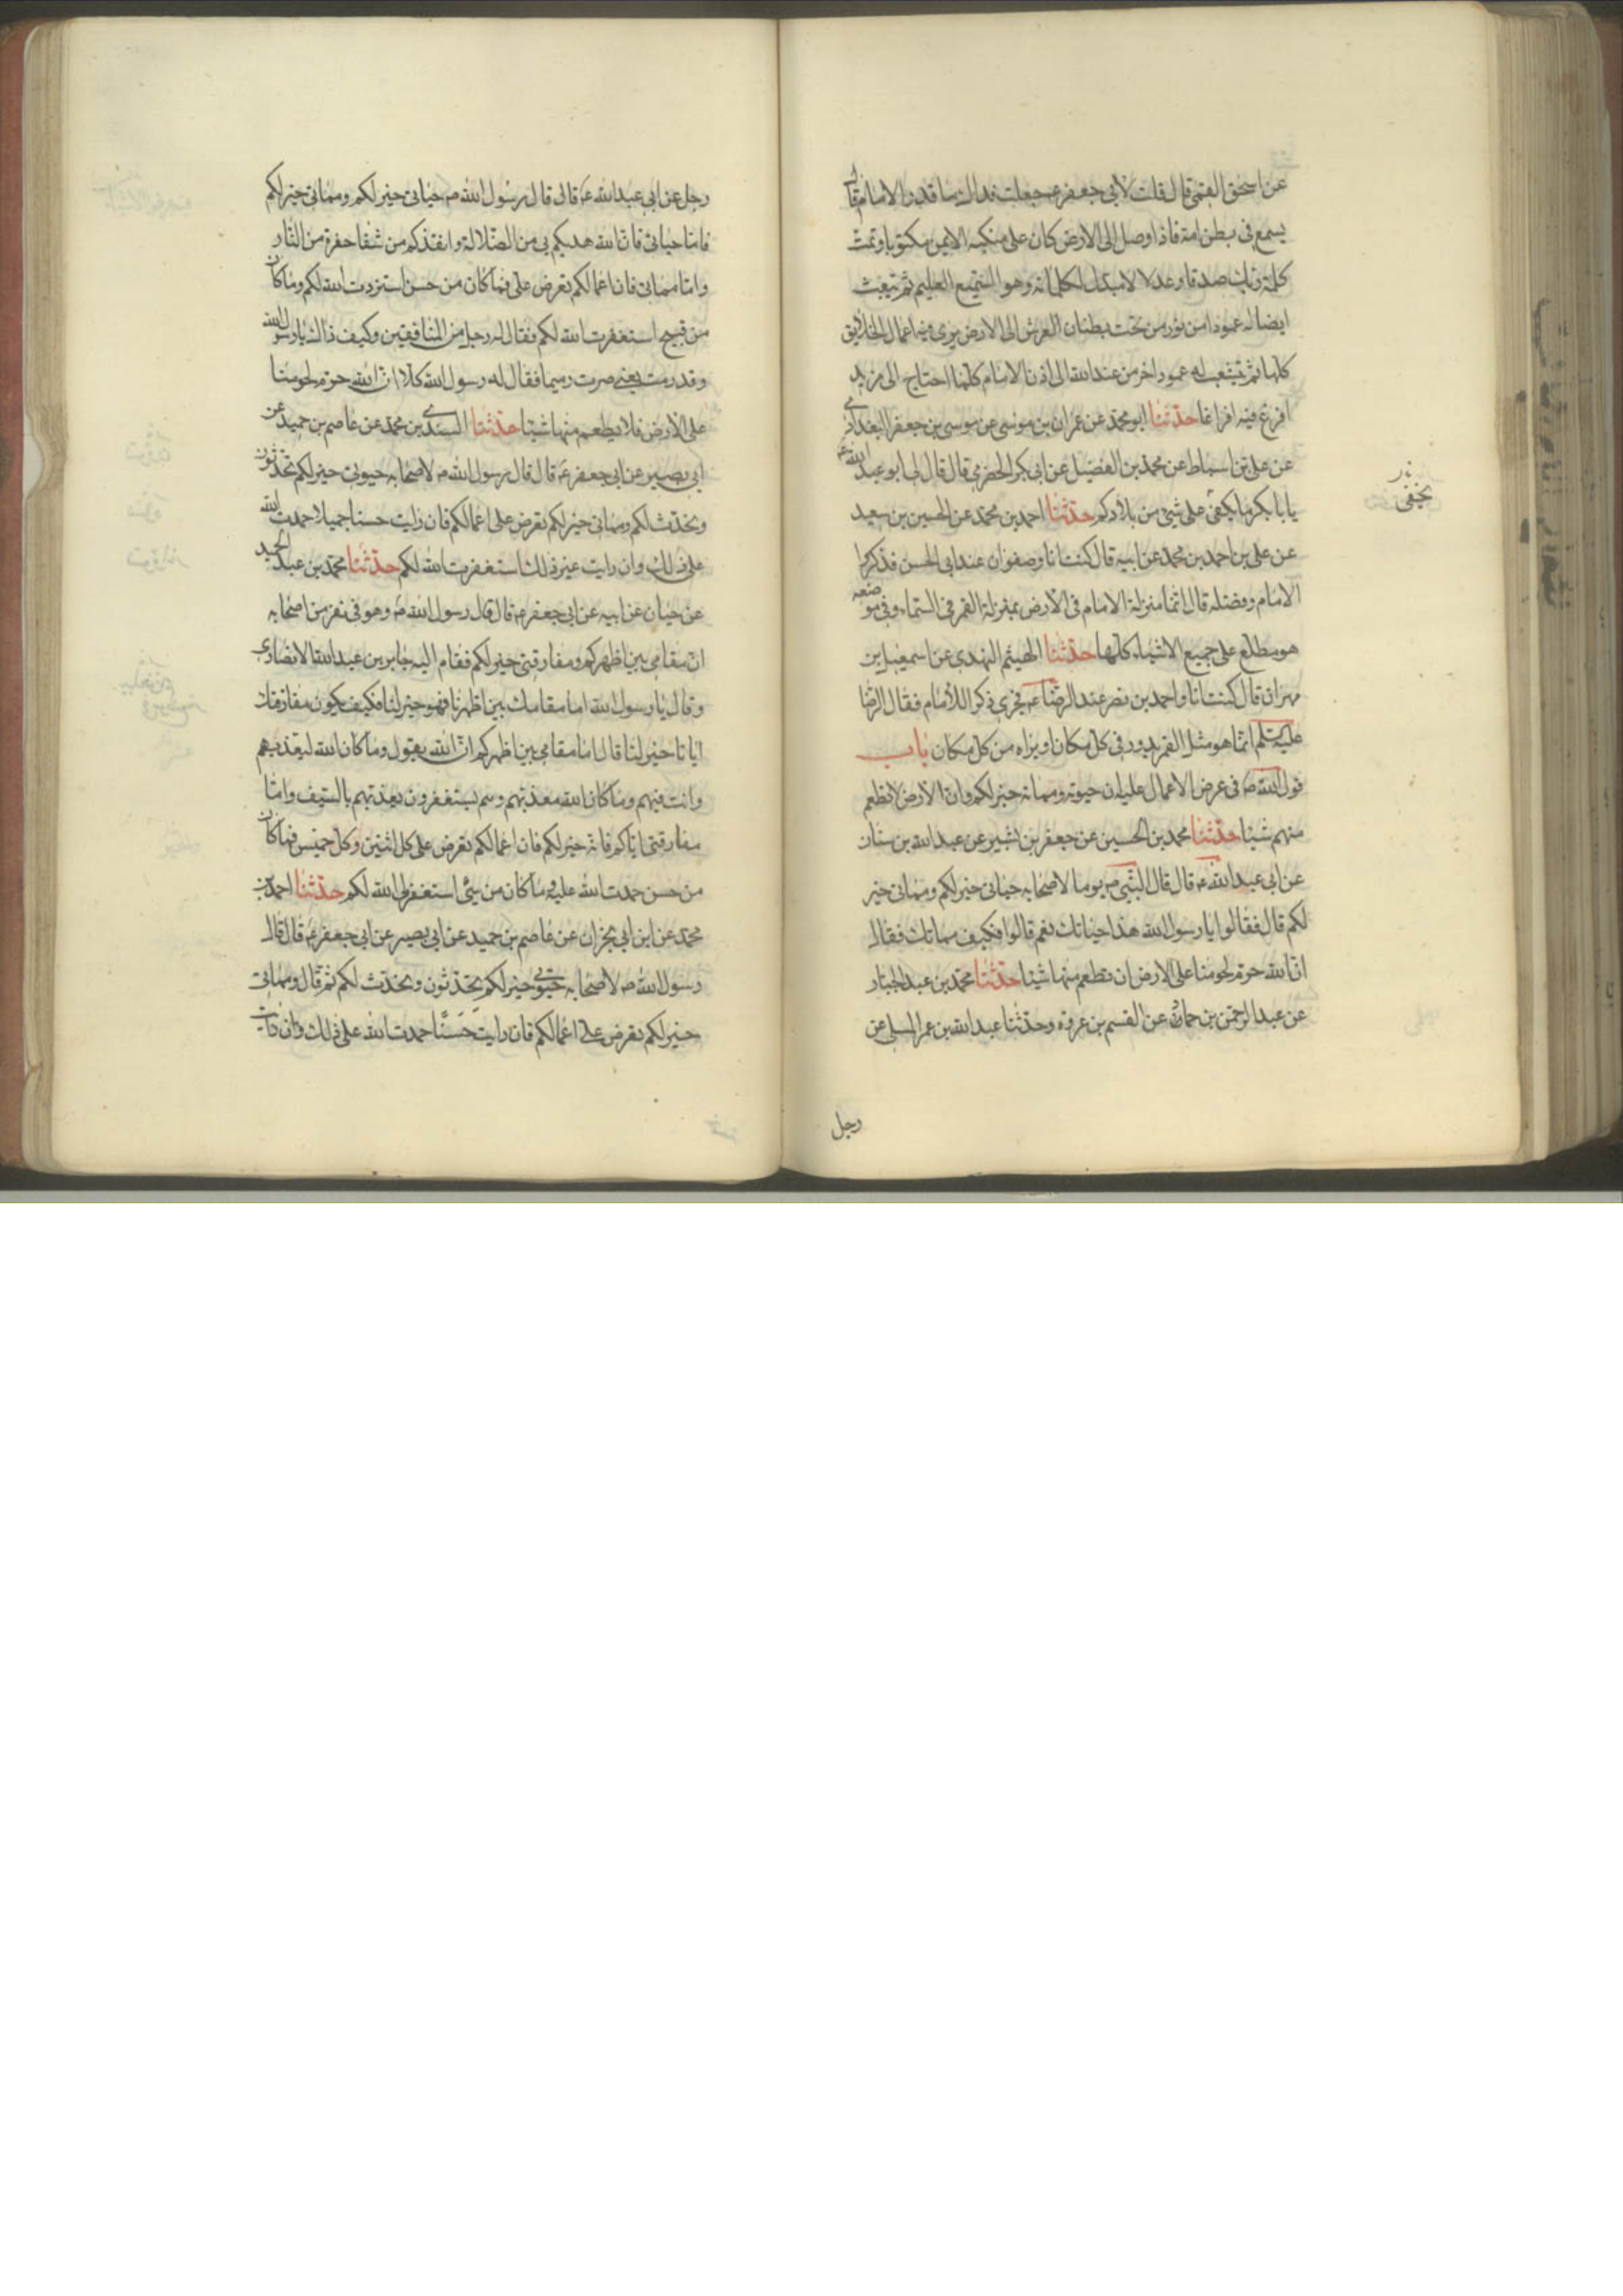 عن اسحق القمى قال قلت لابى جعفر ع جعلت فداك ما قدر الامام قال
يسمع فى بطن امه فاذا وصل الى الارض كان على منكبه الايمن مكتوبا وتمت
كلمة ربك صدقا وعدلا لا مبدل لكلماته وهو السميع العليم ثم يبعث
ايضا له عمودا من نور من تحت بطنان العرش الى الارض يرى فيه اعمال الخلايق
كلها ثم يتشعب له عمود اخر من عند الله الى اذن الامام كلما احتاج الى مزيد
افرغ فيه افراغا حدثنا ابو محمد عن عمران بن موسى عن موسى بن جعفر البغدادى
عن على بن اسباط عن محمد بن الفضيل عن ابى بكر الحضرمى قال قال لى ابو عبد الله ع
يا با بكر ما يخفى على شئ من بلادكم حدثنا احمد بن محمد عن الحسين بن سعيد
يخفى
عن على بن احمد بن محمد عن ابيه قال كنت انا وصفوان عند ابى الحسن فذكروا
الامام وفضله قال انما منزلة الامام فى الارض بمنزلة القمر فى السماء وفى موضعه
هو مطلع على جميع الاشياء كلها حدثنا الهيثم النهدى عن اسمعيل بن
مهران قال كنت انا واحمد بن نصر عند الرضا ع فجرى ذكر الامام فقال الرضا
عليه السلم انما هو مثل القمر يدور فى كل مكان او يراه من كل مكان باب
قول الله ص فى عرض الاعمال عليه ان حيوته ومماته خير لكم وان الارض لا تطعم
منهم شيئا حدثنا محمد بن الحسين عن جعفر بن بشير عن عبد الله بن سنان
عن ابى عبد الله ع قال قال النبى ص يوما لاصحابه حياتى خير لكم ومماتى خير
لكم قال فقالوا يا رسول الله هذا حياتك نعم قالوا فكيف مماتك فقال
ان الله حرم لحومنا على الارض ان تطعم منها شيئا حدثنا محمد بن عبد الجبار
عن عبد الرحمن بن حماد عن القسم بن عروة وحدثنا عبد الله بن عمر المسلى عن
رجل
رجل عن ابى عبد الله ع قال قال رسول الله ص حياتى خير لكم ومماتى خير لكم
فاما حياتى فان الله هديكم بى من الضلالة وانقذكم من شفا حفرة من النار
واما مماتى فان اعمالكم تعرض على فما كان من حسن استزدت الله لكم وما كان
من قبيح استغفرت الله لكم فقال له رجل من المنافقين وكيف ذاك يا رسول الله
وقد رمت يعنى صرت رميما فقال له رسول الله كلا ان الله حرم لحومنا
على الارض فلا يطعم منها شيئا حدثنا السندى بن محمد عن عاصم بن حميد عن
ابى بصير عن ابى جعفر ع قال قال رسول الله ص لاصحابه حيوتى خير لكم تحدثون
ونحدث لكم ومماتى خير لكم تعرض على اعمالكم فان رايت حسنا جميلا حمدت الله
على ذلك وان رايت غير ذلك استغفرت الله لكم حدثنا محمد بن عبد الحميد
عن حيان عن ابيه عن ابى جعفر ع قال قال رسول الله ص وهو فى نفر من اصحابه
ان مقامى بين اظهركم ومفارقتى خير لكم فقام اليه جابر بن عبد الله الانصارى
وقال يا رسول الله اما مقامك بين اظهرنا فهو خير لنا فكيف يكون مفارقتك
ايانا خير لنا قال اما مقامى بين اظهركم ان الله يقول وما كان الله ليعذبهم
وانت فيهم وما كان الله معذبهم وهم يستغفرون يعذبهم بالسيف واما
مفارقتى اياكم فانه خير لكم فان اعمالكم تعرض على كل اثنين وكل خميس فما كان
من حسن حمدت الله عليه وما كان من سئ استغفر الله لكم حدثنا احمد بن
محمد عن ابن ابى نجران عن عاصم بن حميد عن ابى بصير عن ابى جعفر ع قال قال
رسول الله ص لاصحابه حيوتى خير لكم تحدثون ونحدث لكم ثم قال ومماتى
خير لكم تعرض على اعمالكم فان رايت حسنا حمدت الله على ذلك وان